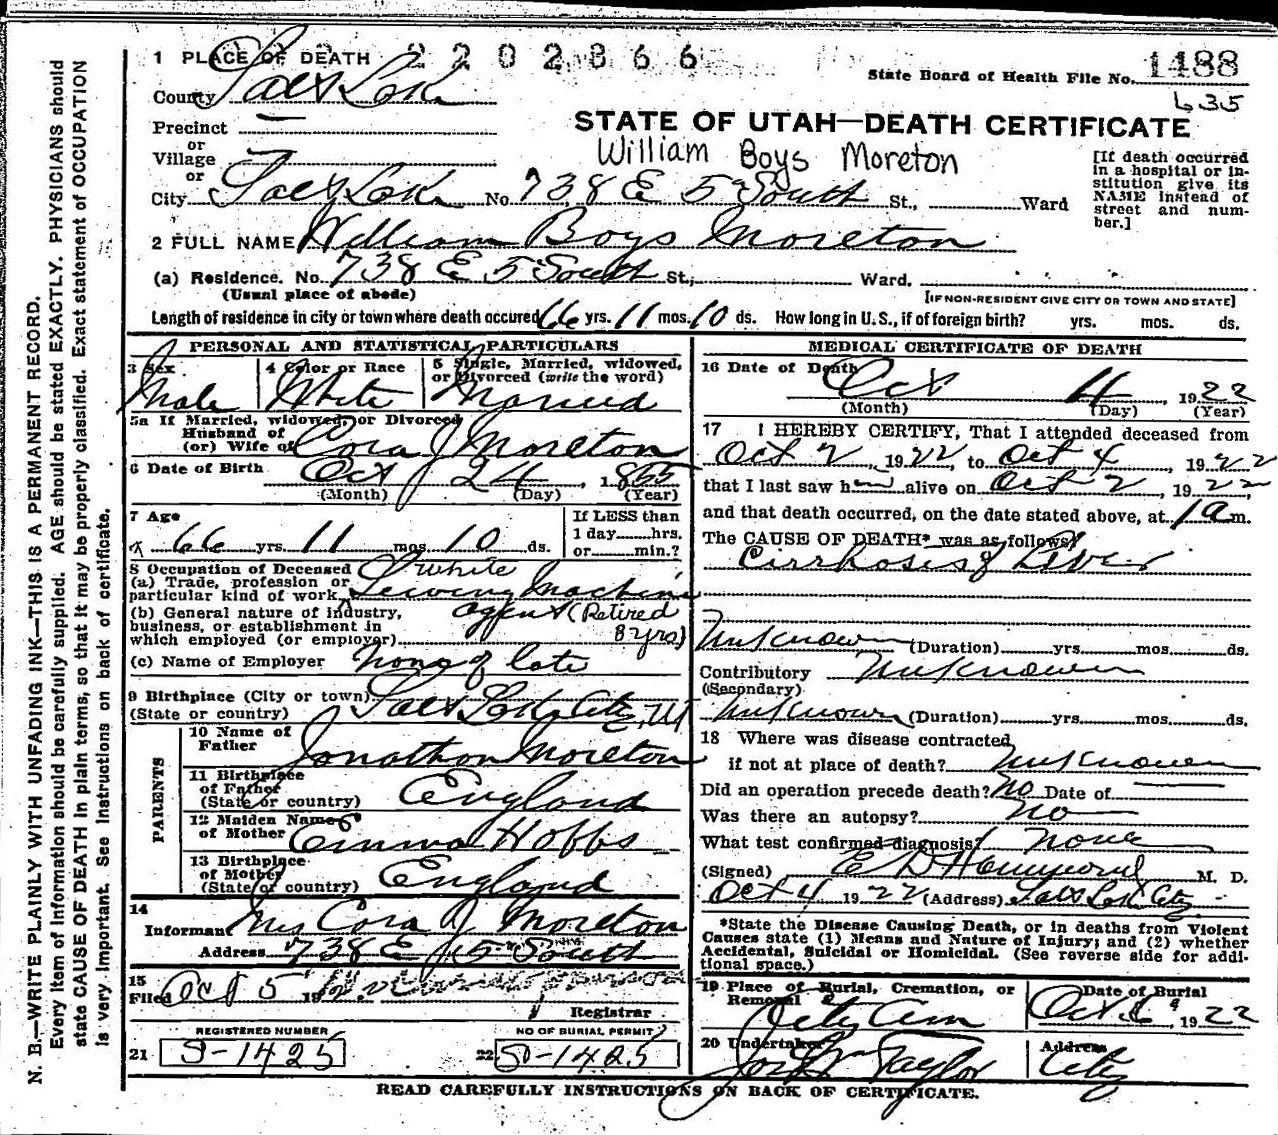 1 PLACE OF DEATH 2202366
State Board of Health File No. 1488
County Salt Lake
635
Precinct
or
Village
or
STATE OF UTAH—DEATH CERTIFICATE
William Boys Moreton
[If death occurred in a hospital or institution give its NAME instead of street and number.]
City Salt Lake No. 738 E 5" South St., Ward
2 FULL NAME William Boys Moreton
(a) Residence. No. 738 E 5" South St., Ward.
(Usual place of abode) [IF NON-RESIDENT GIVE CITY OR TOWN AND STATE]
Length of residence in city or town where death occured 66 yrs. 11 mos. 10 ds. How long in U.S., if of foreign birth? yrs. mos. ds.
PERSONAL AND STATISTICAL PARTICULARS
3 Sex 4 Color or Race 5 Single, Married, widowed, or Divorced (write the word)
Male White Married
5a If Married, widowed, or Divorced
Husband of
(or) Wife of Cora J Moreton
6 Date of Birth Oct 24, 1855
(Month) (Day) (Year)
7 Age
66 yrs. 11 mos. 10 ds.
If LESS than
1 day hrs.
or min.?
8 Occupation of Deceased White
(a) Trade, profession or
particular kind of work. Sewing Machine
(b) General nature of industry,
business, or establishment in
which employed (or employer) agent (Retired 8 yrs)
(c) Name of Employer None of late
9 Birthplace (City or town)
(State or country) Salt Lake City, Ut
PARENTS
10 Name of
Father Jonathon Moreton
11 Birthplace
of Father
(State or country) England
12 Maiden Name
of Mother Emma Hobbs
13 Birthplace
of Mother
(State or country) England
14
Informant Mrs Cora J Moreton
Address 738 E 5" South
15
Filed Oct 5 19
Registrar
REGISTERED NUMBER NO OF BURIAL PERMIT
21 S-1425 22 SO-1425
MEDICAL CERTIFICATE OF DEATH
16 Date of Death
Oct 4, 1922
(Month) (Day) (Year)
17 I HEREBY CERTIFY, That I attended deceased from
Oct 2, 1922, to Oct 4, 1922
that I last saw him alive on Oct 2, 1922,
and that death occurred, on the date stated above, at 1 a m.
The CAUSE OF DEATH* was as follows:
Cirrhosis of Liver
Unknown (Duration) yrs. mos. ds.
Contributory Unknown
(Secondary)
Unknown (Duration) yrs. mos. ds.
18 Where was disease contracted
if not at place of death? Unknown
Did an operation precede death? No Date of
Was there an autopsy? No
What test confirmed diagnosis? None
(Signed) E D Hammond M. D.
Oct 4 1922 (Address) Salt Lake City
*State the Disease Causing Death, or in deaths from Violent
Causes state (1) Means and Nature of Injury; and (2) whether
Accidental, Suicidal or Homicidal. (See reverse side for addi-
tional space.)
19 Place of Burial, Cremation, or
Removal City Cem
Date of Burial
Oct 6" 1922
20 Undertaker
Jos Wm Taylor
Address
City
READ CAREFULLY INSTRUCTIONS ON BACK OF CERTIFICATE.
N. B.—WRITE PLAINLY WITH UNFADING INK—THIS IS A PERMANENT RECORD.
Every item of information should be carefully supplied. AGE should be stated EXACTLY. PHYSICIANS should
state CAUSE OF DEATH in plain terms, so that it may be properly classified. Exact statement of OCCUPATION
is very important. See Instructions on back of certificate.